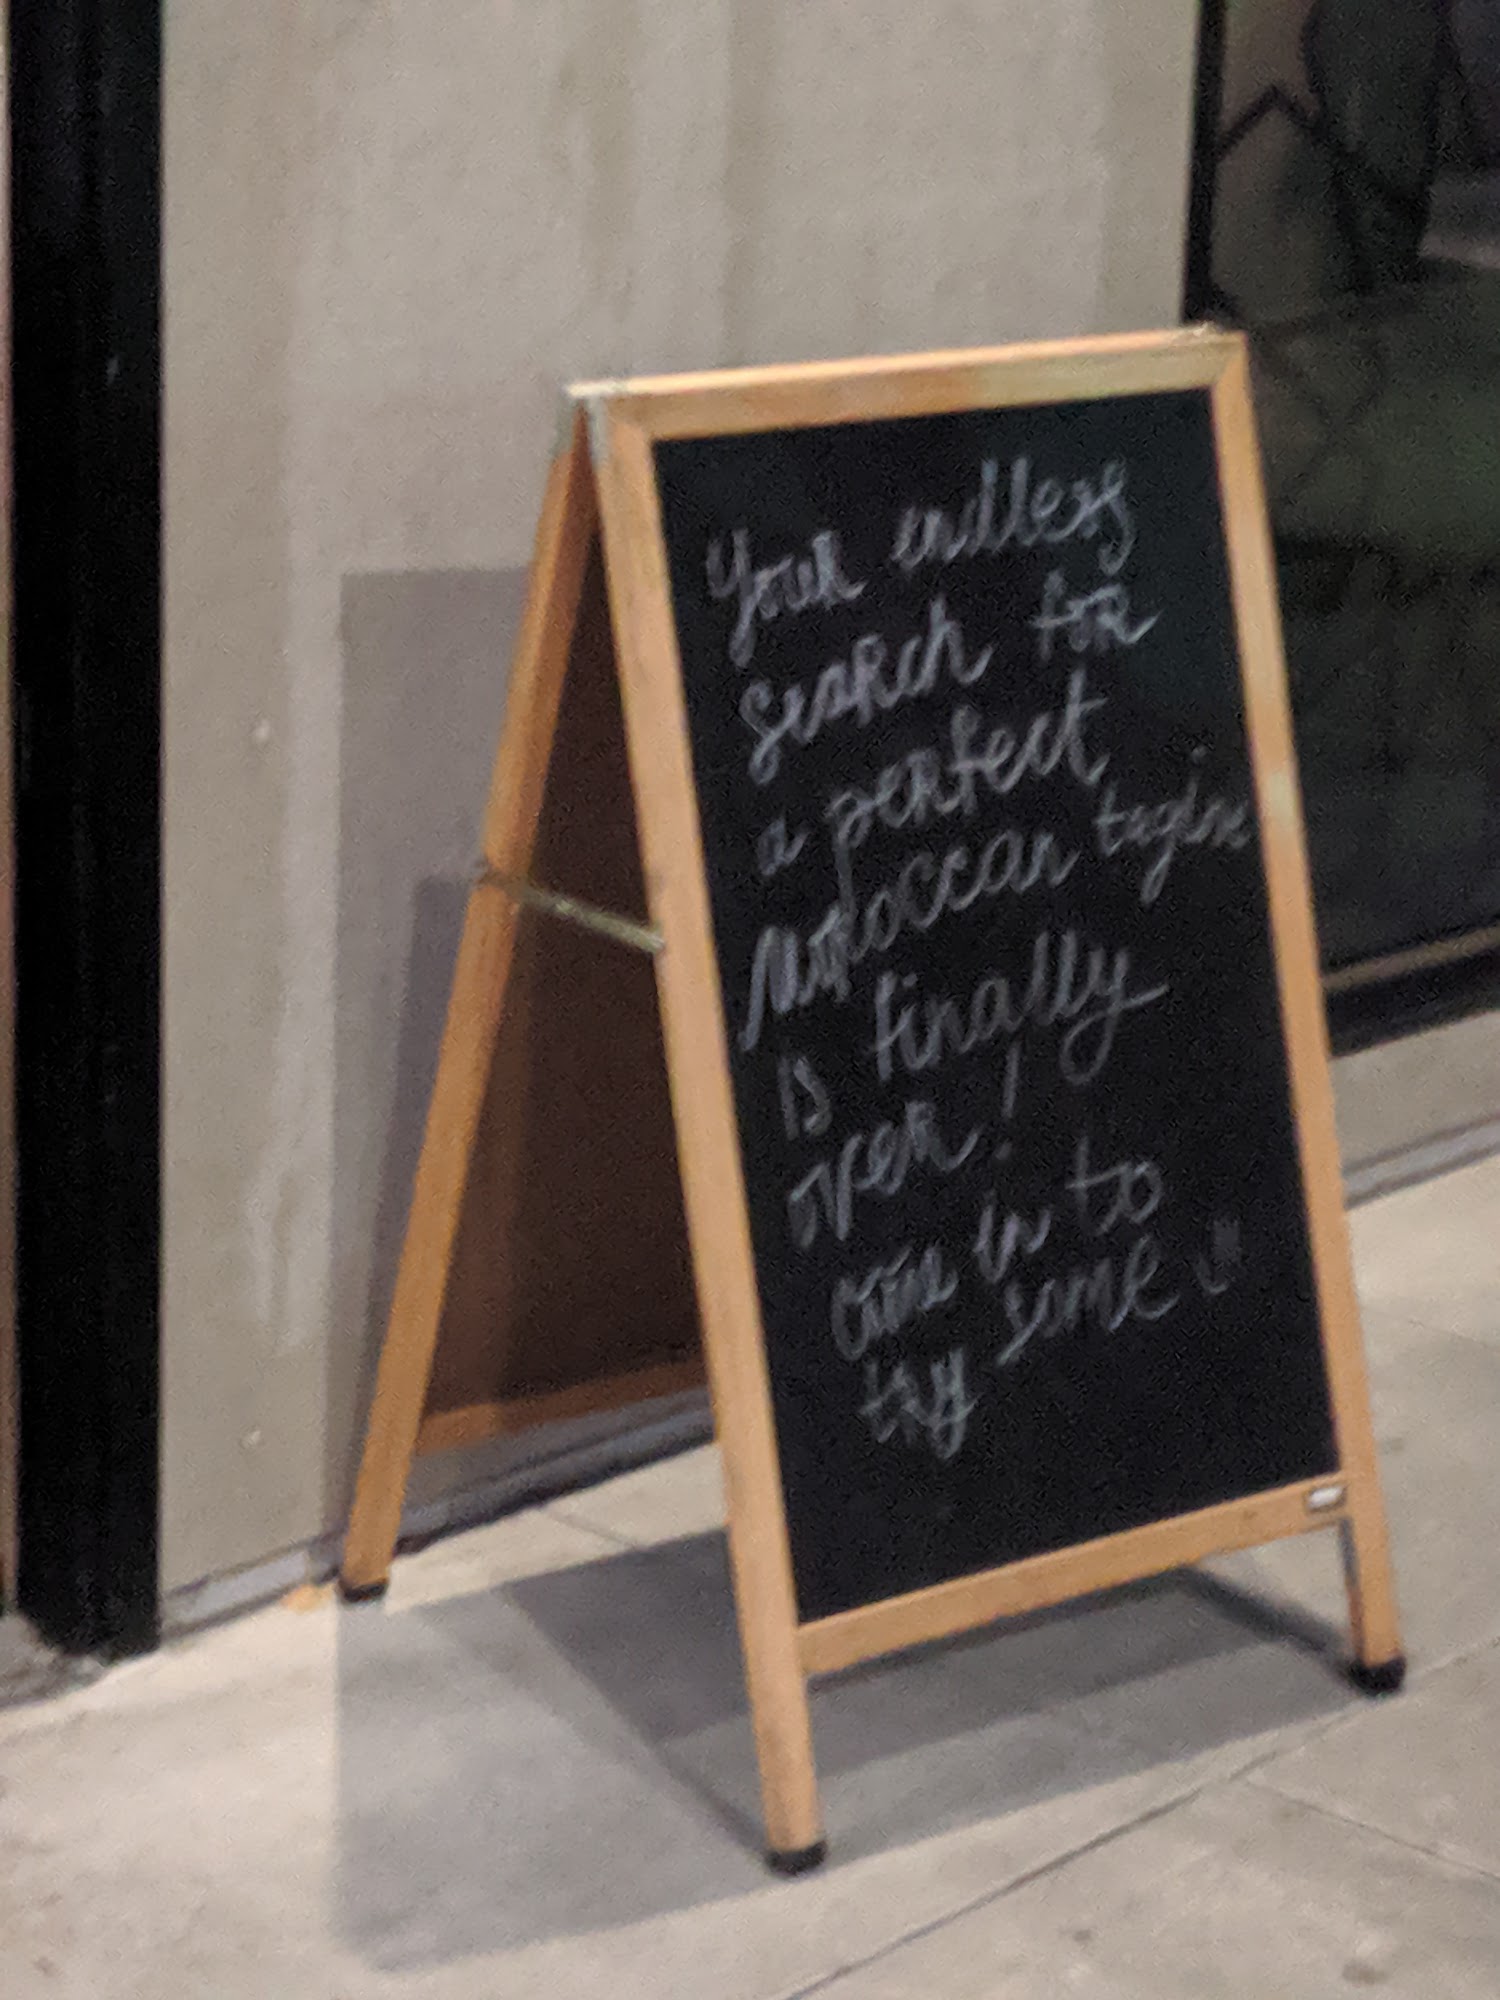 Your endless
search for
a perfect
Moroccan tagine
is finally
over!
come in to
try some